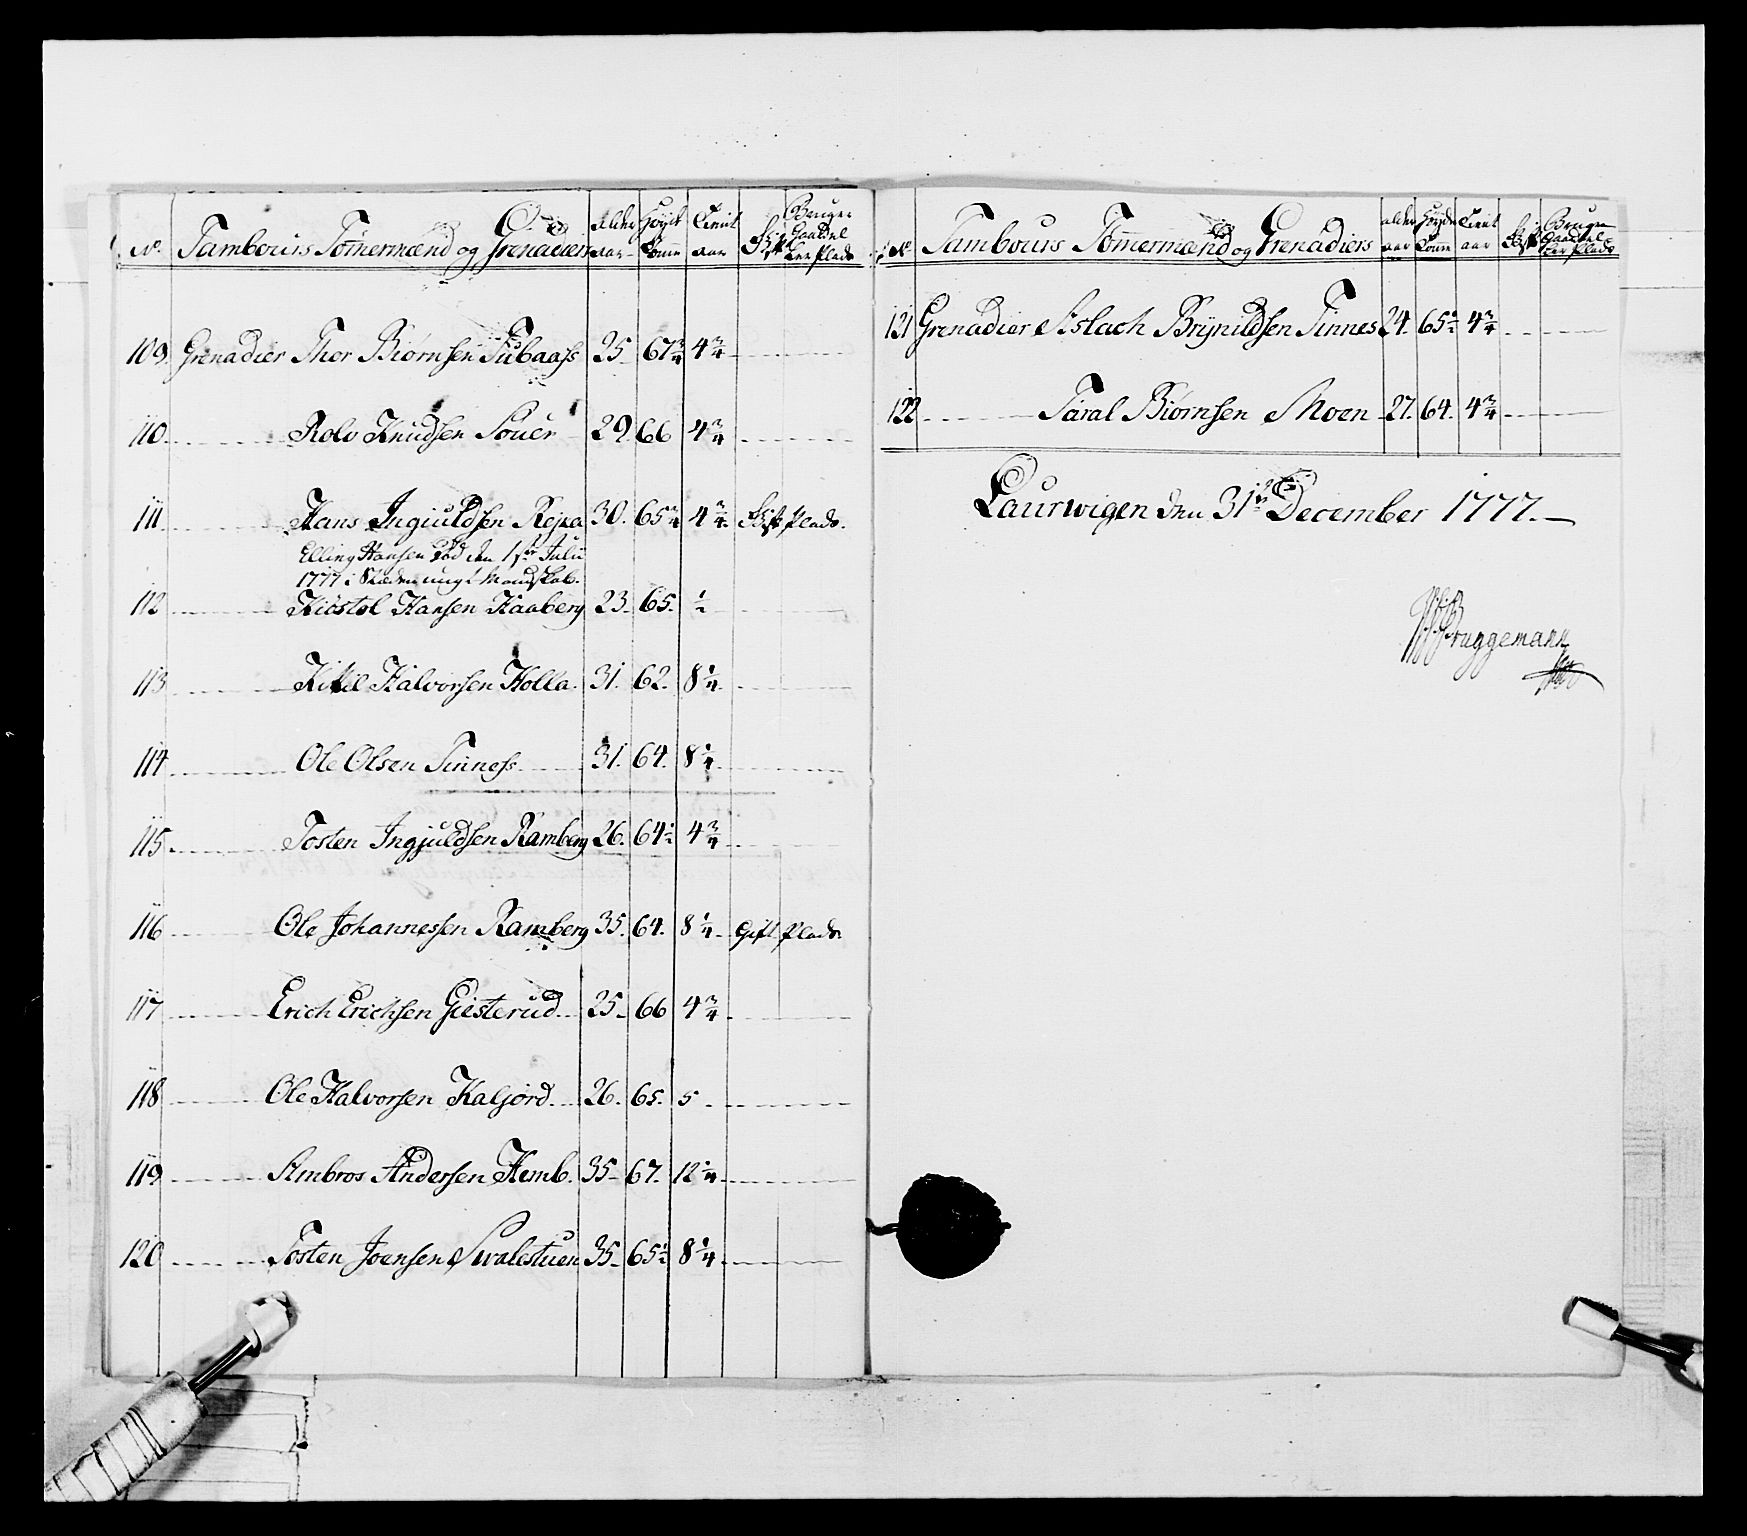 No. Tambours Tømermænd og Grenaders alder aar Høyde Tomme Tient aar Gift Bruger Gaard el ler Plads
109 Grenadier Thor Biørnsen Tubaass 25 67 3/4 4 3/4
110 Rolv Knudsen Souer 29 66 4 3/4
111 Hans Ingiuldsen Rejsa 30. 65 3/4 4 3/4 Gift Plads.
Elling Hansen død den 1ste Julii
1777 i Stæden ungt Mandskab.
112 Kiöstol Hansen Haaberg 23. 65. 1/2
113 Kittil Halvorsen Holla 31. 62. 8 1/4
114 Ole Olsen Tinness 31. 64. 8 1/4
115 Tosten Ingjuldsen Ramberg 26. 64 1/2 4 3/4
116 Ole Johannessen Ramberg 35. 64. 8 1/4 Gift Plads.
117 Erich Erichsen Giesterud 25 66 4 3/4
118 Ole Halvorsen Kaljord 26. 65. 5
119 Ambros Andersen Hemb. 35 67. 12 1/4
120 Tosten Joensen Svalestuen 35 65 1/2 8 1/4
No Tambours Tømermænd og Grenadiers alder aar Høyde Tomme Tient aar Gift Bruger Gaard el ler Plads
121 Grenadier Aslach Brynildsen Tinnes 24. 65 1/2 4 3/4
122 Taral Biørnsen Moen 27. 64. 4 3/4
Laurwigen den 31te December 1777.
Bruggemann